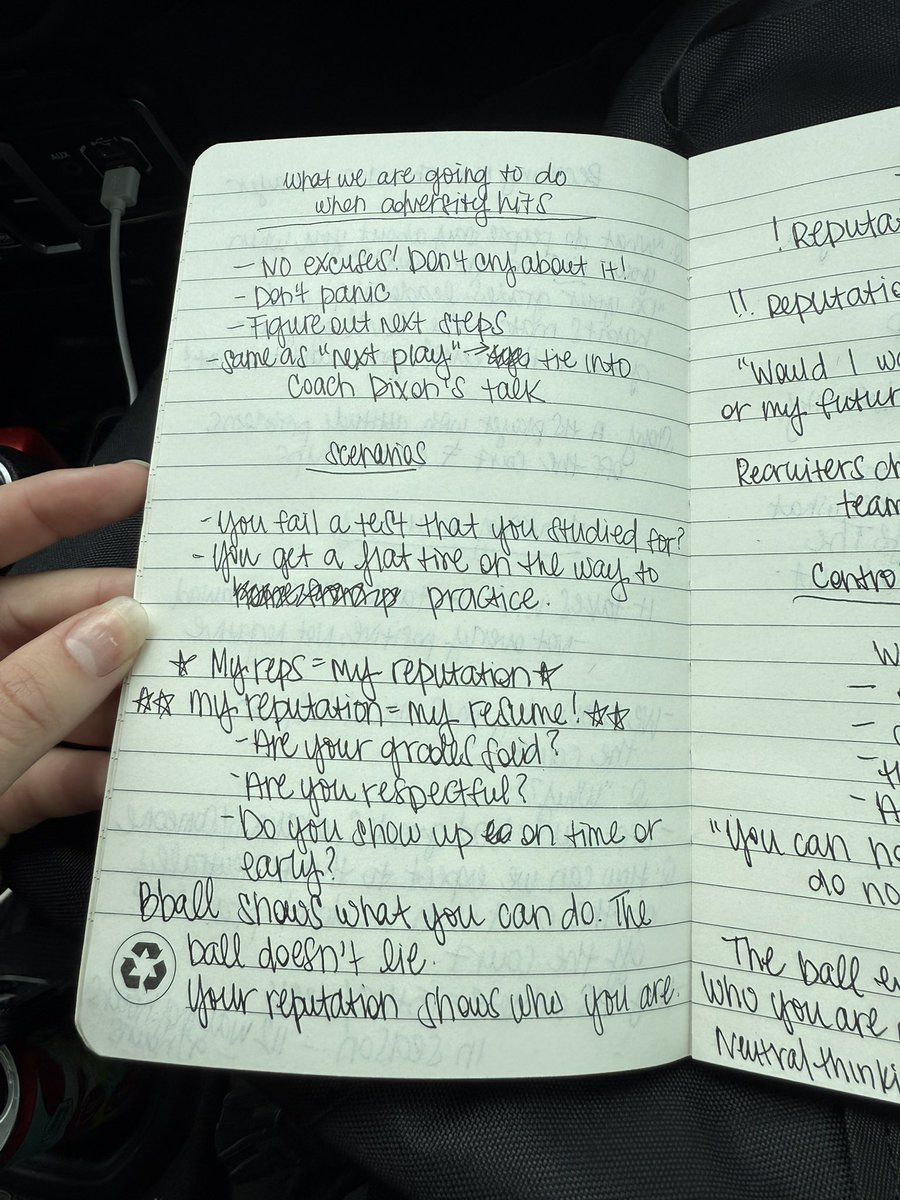 what we are going to do
when adversity hits
- No excuses! Don't cry about it!
- Don't panic
- Figure out next steps
- same as "next play" -> tie into
Coach Dixon's talk
scenarios
- You fail a test that you studied for?
- You get a flat tire on the way to
practice.
☆ My reps = My reputation ☆
☆☆ my reputation = my resume! ☆☆
- Are your grades solid?
- Are you respectful?
- Do you show up on time or
early?
Bball shows what you can do. The
ball doesn't lie.
Your reputation shows who you are.
! Reputa
!! reputatio
"Would I wa
or my futur
Recruiters ch
team
Contro
W
"You can no
do no
The ball e
who you are
Neutral thinki
AUX